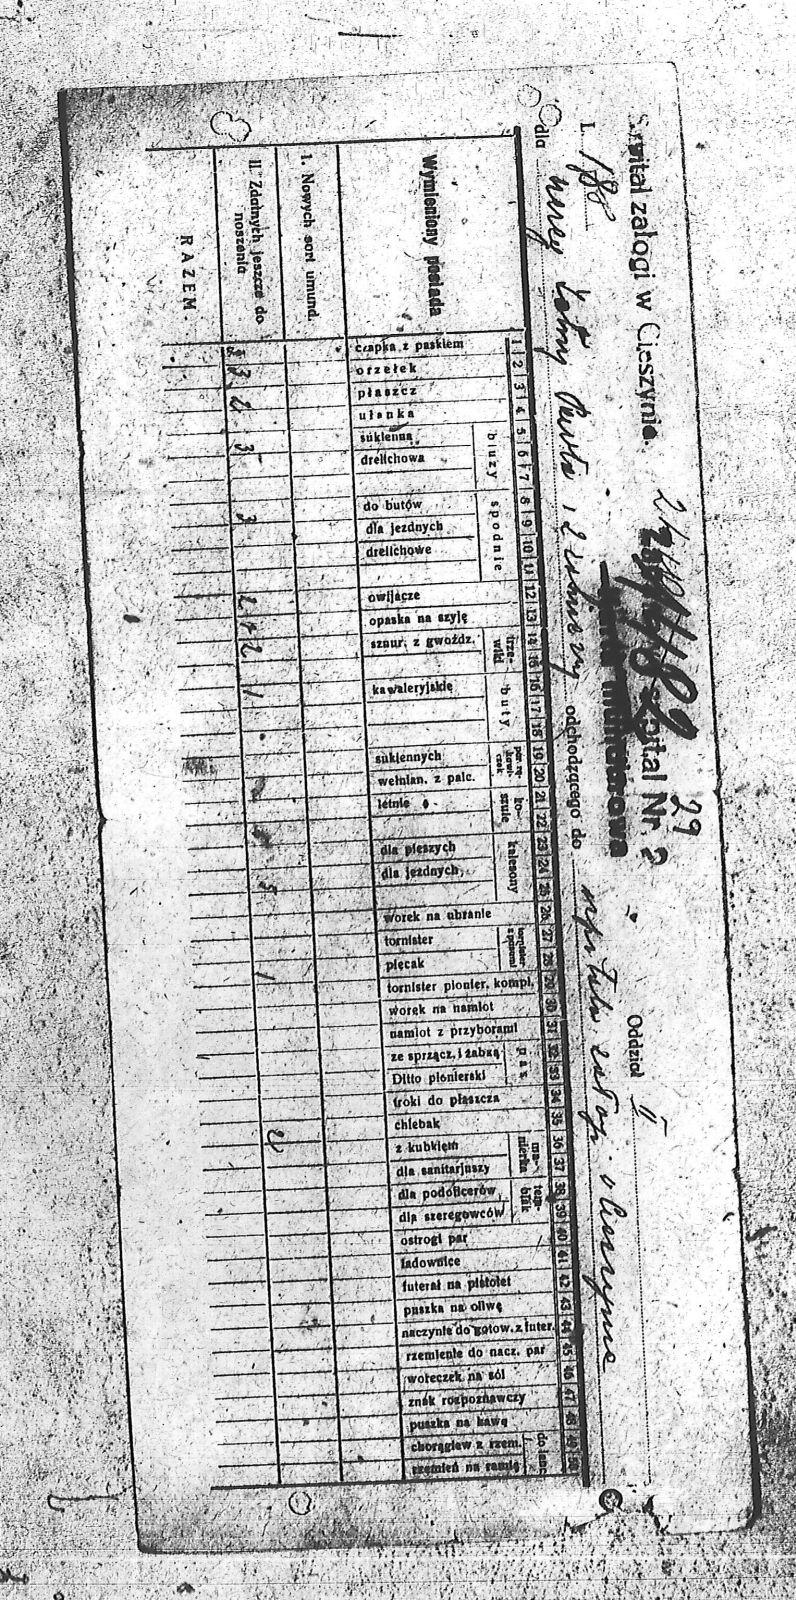 Szpital załogi w Cieszynie. Szpital Nr. 2 29
L. 188 Karta mundurowa Oddział II
dla Pawła i odchodzącego do szpitala załogi w Cieszynie
Wymieniony posiada
1 czapka z paskiem
2 orzełek
3 płaszcz
4 ułanka
bluzy
5 sukienna
6 drelichowa
7
spodnie
8 do butów
9 dla jezdnych
10 drelichowe
11
12 owijacze
13 opaska na szyję
trzewiki
14 sznur. z gwoźdz.
15
buty
16 kawaleryjskie
17
18
19 sukiennych
20 wełnian. z palc.
koszule
21 letnie
22
kalesony
23 dla pieszych
24 dla jezdnych
25
26 worek na ubranie
27 tornister
28 plecak
29 tornister pionier. kompl.
30 worek na namiot
31 namiot z przyborami
pas
32 ze sprzącz. i żabką
33 Ditto pionierski
34 troki do płaszcza
35 chlebak
manierka
36 z kubkiem
37 dla sanitarjuszy
38 dla podoficerów
39 dla szeregowców
40 ostrogi par
41 ładownice
42 futerał na pistolet
43 puszka na oliwę
44 naczynie do gotow. z futer.
45 rzemienie do nacz. par
46 woreczek na sól
47 znak rozpoznawczy
48 puszka na kawę
do lanc
49 chorągiew z rzem.
50 rzemień na ramię
I. Nowych sort umund.
II. Zdatnych jeszcze do noszenia
3 2 3 3 2+2 1 5 1 2
RAZEM